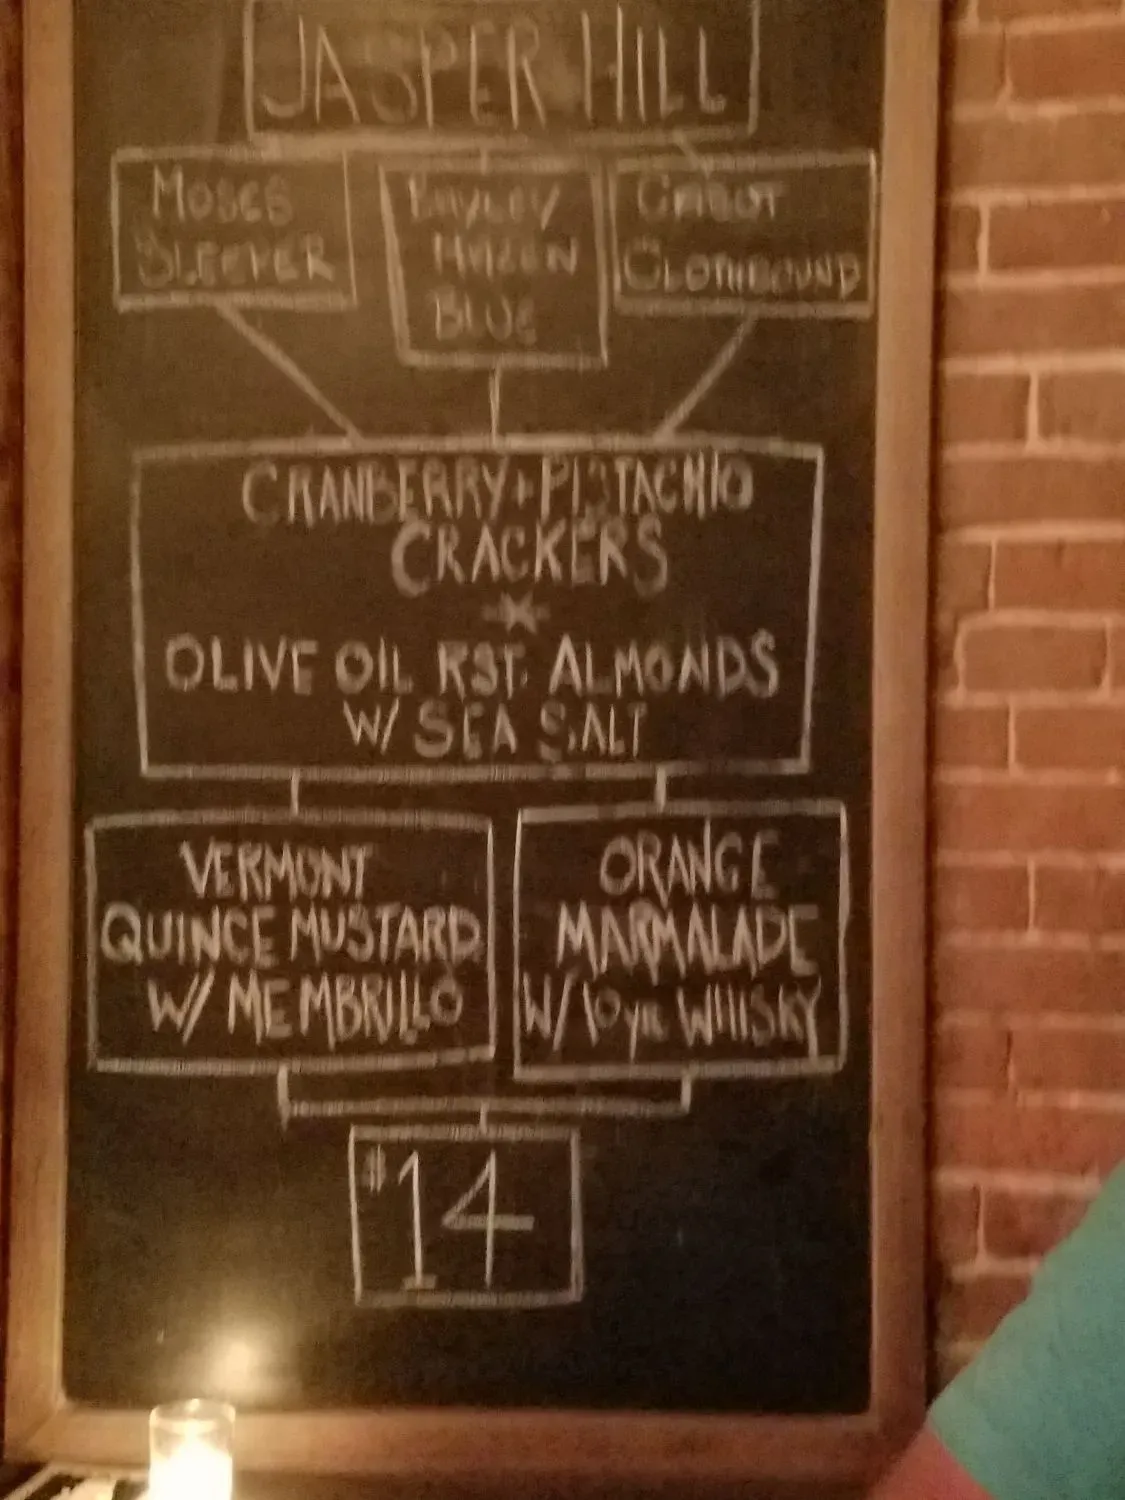 JASPER HILL
MOSES
SLEEPER
BAYLEY
HAZEN
BLUE
CABOT
CLOTHBOUND
CRANBERRY + PISTACHIO
CRACKERS
OLIVE OIL RST. ALMONDS
W/ SEA SALT
VERMONT
QUINCE MUSTARD
W/ MEMBRILLO
ORANGE
MARMALADE
W/ 10 YR WHISKY
$14